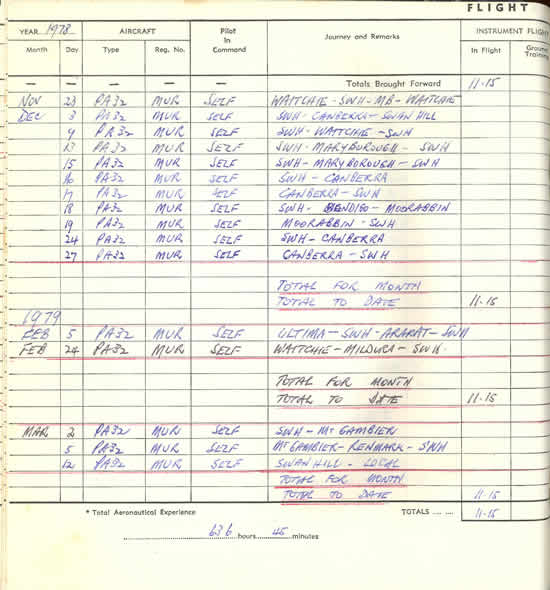 FLIGHT
YEAR 1978 AIRCRAFT Pilot In Command Journey and Remarks INSTRUMENT FLIGH
Month Day Type Reg. No. In Flight Ground Training
— — — — — Totals Brought Forward 11-15
NOV 23 PA32 MUR SELF WAITCHIE - SWH - MB - WAITCHIE
DEC 3 PA32 MUR SELF SWH - CANBERRA - SWAN HILL
9 PA32 MUR SELF SWH - WAITCHIE - SWH
13 PA32 MUR SELF SWH - MARYBOROUGH - SWH
15 PA32 MUR SELF SWH - MARYBOROUGH - SWH
16 PA32 MUR SELF SWH - CANBERRA
17 PA32 MUR SELF CANBERRA - SWH
18 PA32 MUR SELF SWH - BENDIGO - MOORABBIN
19 PA32 MUR SELF MOORABBIN - SWH
24 PA32 MUR SELF SWH - CANBERRA
27 PA32 MUR SELF CANBERRA - SWH
TOTAL FOR MONTH
TOTAL TO DATE 11-15
1979
FEB 5 PA32 MUR SELF ULTIMA - SWH - ARARAT - SWH
FEB 24 PA32 MUR SELF WAITCHIE - MILDURA - SWH.
TOTAL FOR MONTH
TOTAL TO DATE 11-15
MAR 2 PA32 MUR SELF SWH - Mt GAMBIER
5 PA32 MUR SELF Mt GAMBIER - RENMARK - SWH
12 PA32 MUR SELF SWAN HILL - LOCAL
TOTAL FOR MONTH
TOTAL TO DATE 11-15
* Total Aeronautical Experience TOTALS .... .... 11-15
636 hours 45 minutes